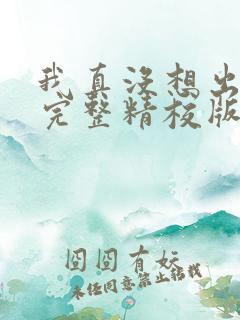 我真没想出
完整精校版
囧囧有妖
未经同意禁止转载